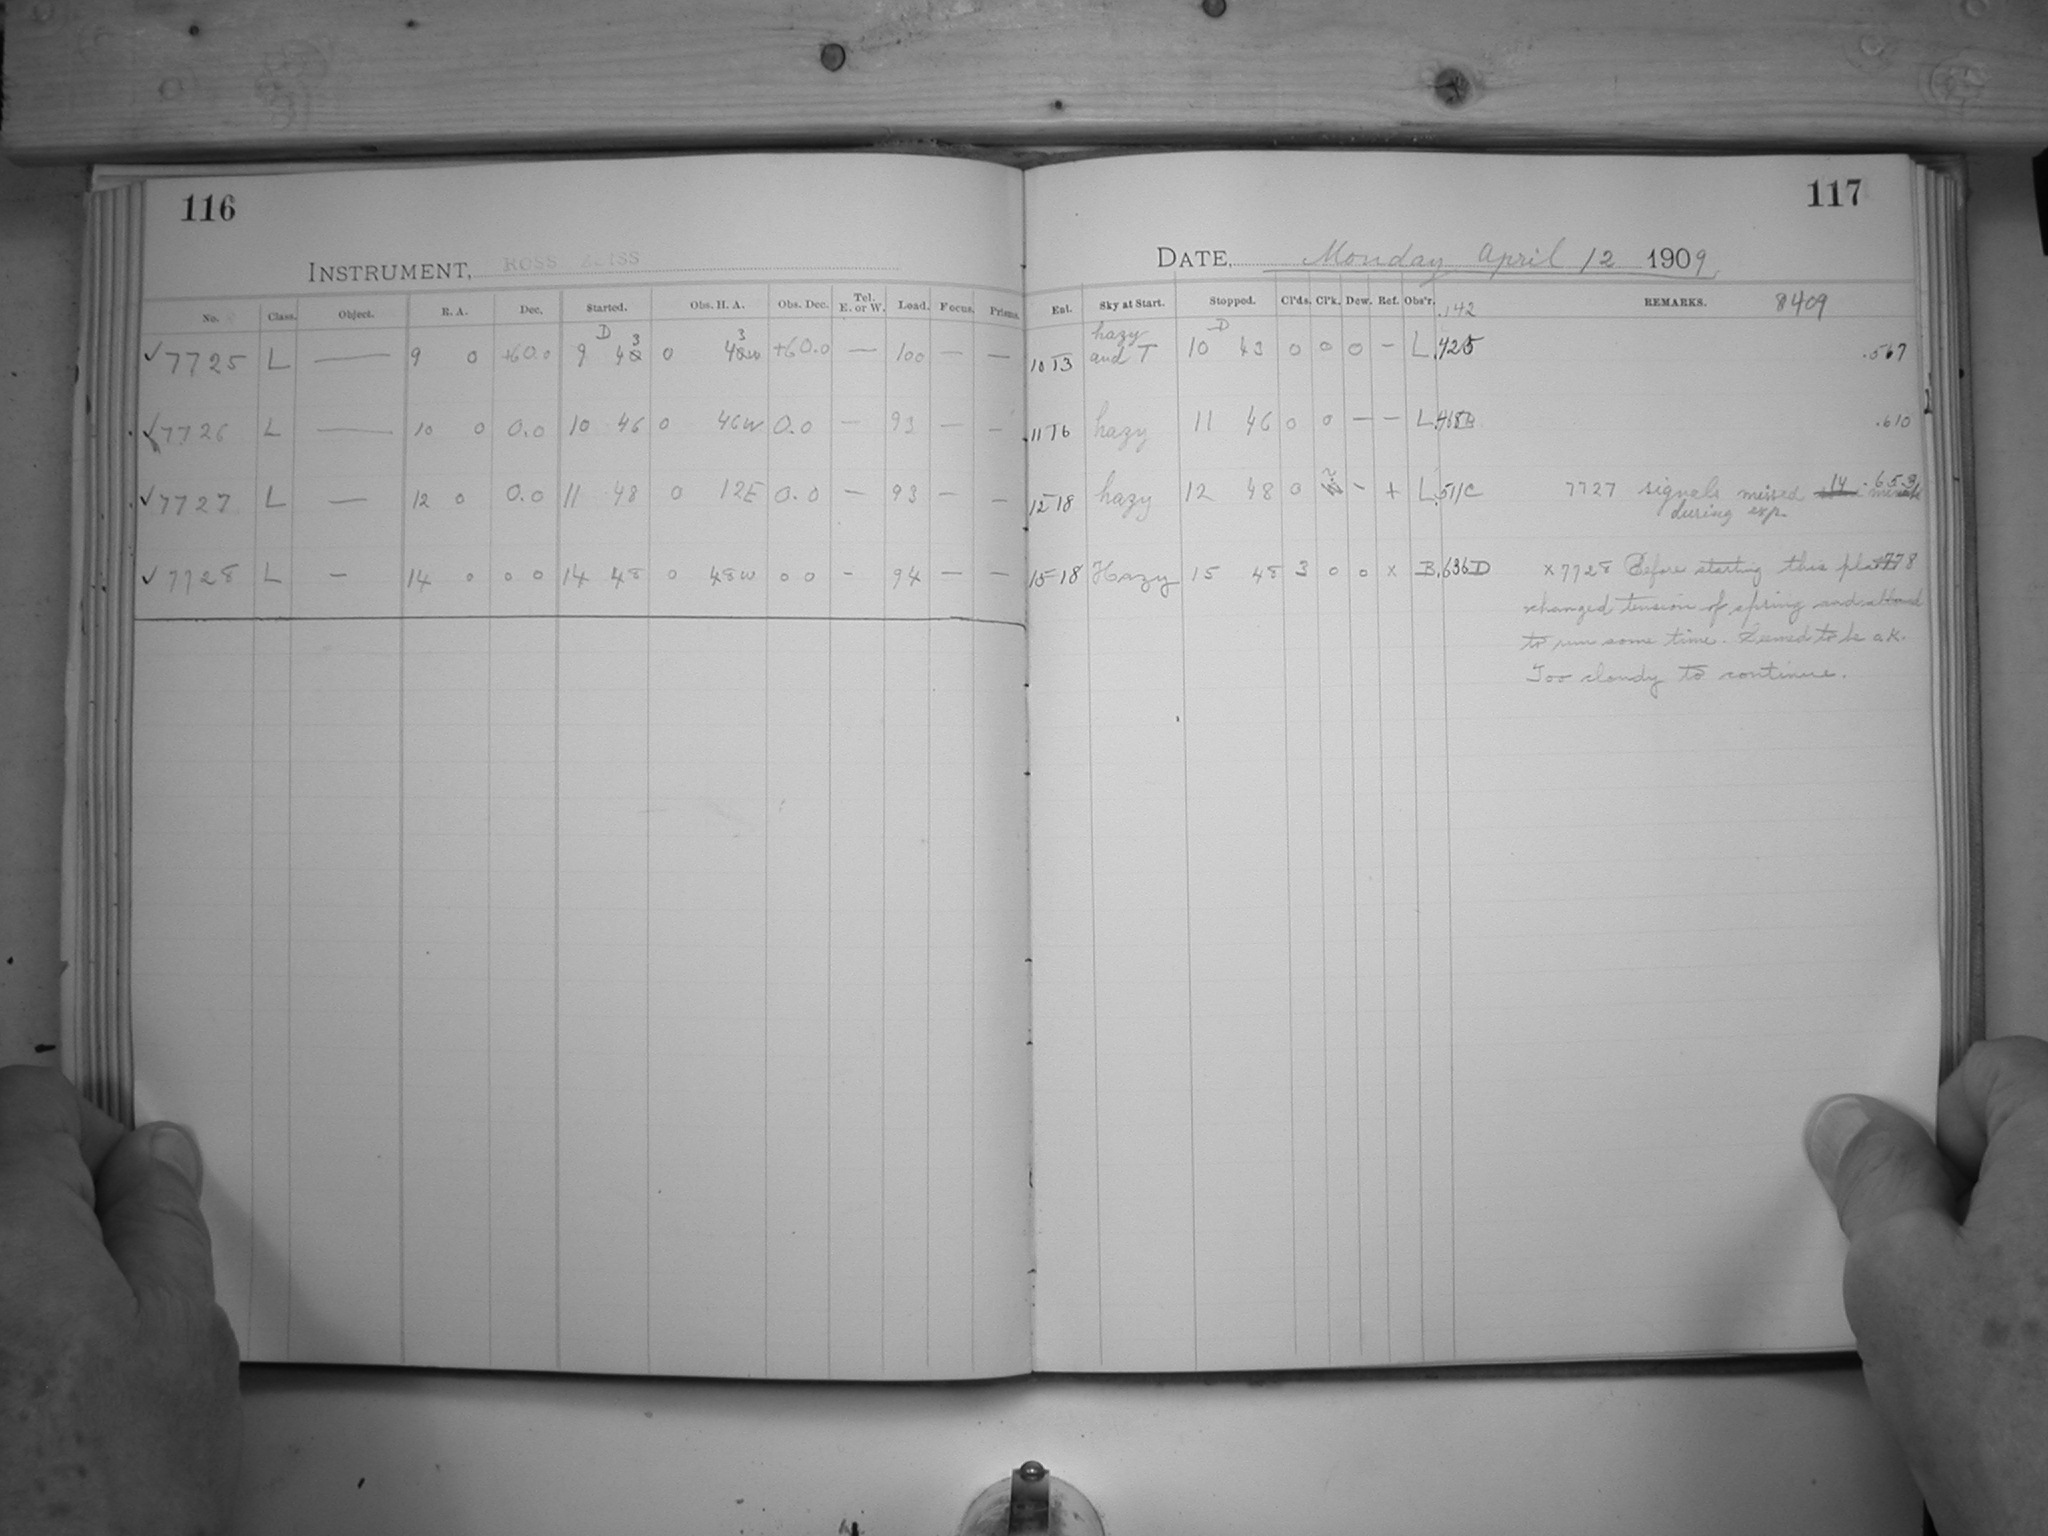 116
117
INSTRUMENT, ROSS ZEISS
DATE, Monday April 12 1909
No. Class. Object. R. A. Dec. Started. Obs. H. A. Obs. Dec. Tel. E. or W. Load. Focus. Prisms.
Ent. Sky at Start. Stopped. Cl'ds. Cl'k. Dew. Ref. Obs'r. .142 REMARKS. 8409
✓ 7725 L — 9 0 +60.0 D 9 43 0 43w +60.0 — 100 — —
hazy and T D 10 43 0 0 0 — L .567
✓ 7726 L — 10 0 0.0 10 46 0 46w 0.0 — 93 — —
hazy 11 46 0 0 — — L .610
✓ 7727 L — 12 0 0.0 11 48 0 12E 0.0 — 93 — —
12 18 hazy 12 48 0 - + L .511C 7727 signals missed 14 minute .653
during exp.
✓ 7728 L — 14 0 0 0 14 48 0 48w 0 0 - 94 — —
15 18 Hazy 15 48 3 0 0 x B .636D x 7728 Before starting this plate .778
changed tension of spring and allowed
to run some time. Seemed to be o.k.
Too cloudy to continue.